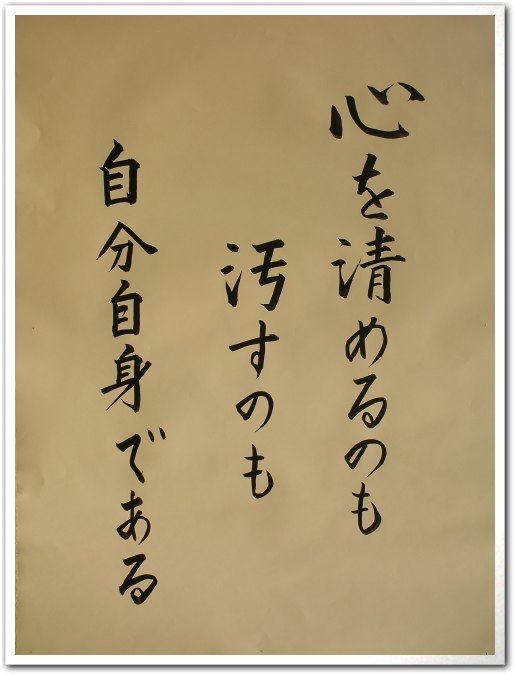 心を清めるのも
汚すのも
自分自身である